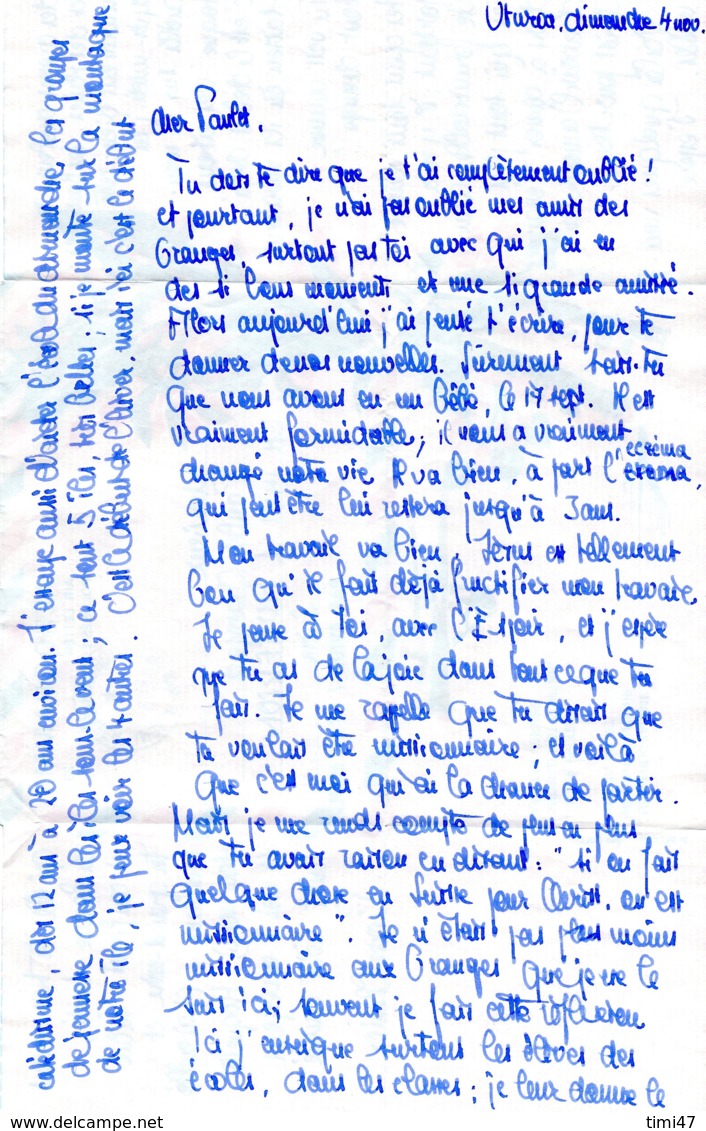 Uturoa, dimanche 4 nov.
Cher Paulet,
Tu dois te dire que je t'ai complètement oublié !
et pourtant, je n'ai pas oublié mes amis des
Granges, surtout pas toi avec qui j'ai eu
des si bons moments et une si grande amitié.
Alors aujourd'hui j'ai pensé t'écrire, pour te
donner de nos nouvelles. Sûrement sais-tu
que nous avons eu un Bébé, le 17 sept. Il est
vraiment formidable ; il nous a vraiment
changé notre vie. Il va bien, à part l'eczéma,
qui peut être lui restera jusqu'à 3 ans.
Mon travail va bien, Jésus est tellement
bon qu'il fait déjà fructifier mon travail.
Je pense à toi, avec l'Espoir, et j'espère
que tu as de la joie dans tout ce que tu
fais. Je me rappelle que tu disais que
tu voulais être missionnaire ; et voilà
que c'est moi qui ai la chance de partir.
Mais je me rends compte de plus en plus
que tu avais raison en disant : "si on fait
quelque chose en Suisse pour Christ, on est
missionnaire". Je n'étais pas plus moins
missionnaire aux Granges que je ne le
suis ici ; souvent je fais cette réflexion
Ici j'enseigne surtout les élèves des
écoles, dans les classes ; je leur donne le
catéchisme, des 12 ans à 20 ans environ. J'essaye aussi d'aider l'école du dimanche, les groupes
de jeunesse dans les îles sous-le-vent ; ce sont 5 îles, très belles ; si je monte sur la montagne
de notre île, je peux voir les 4 autres. C'est le début de l'hiver, mais ici c'est le début
timi47